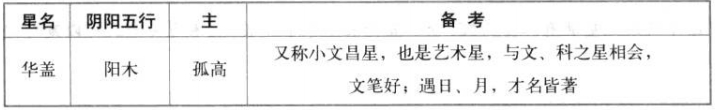 星名 阴阳五行 主 备 考
华盖 阳木 孤高 又称小文昌星，也是艺术星，与文、科之星相会，
文笔好；遇日、月，才名皆著